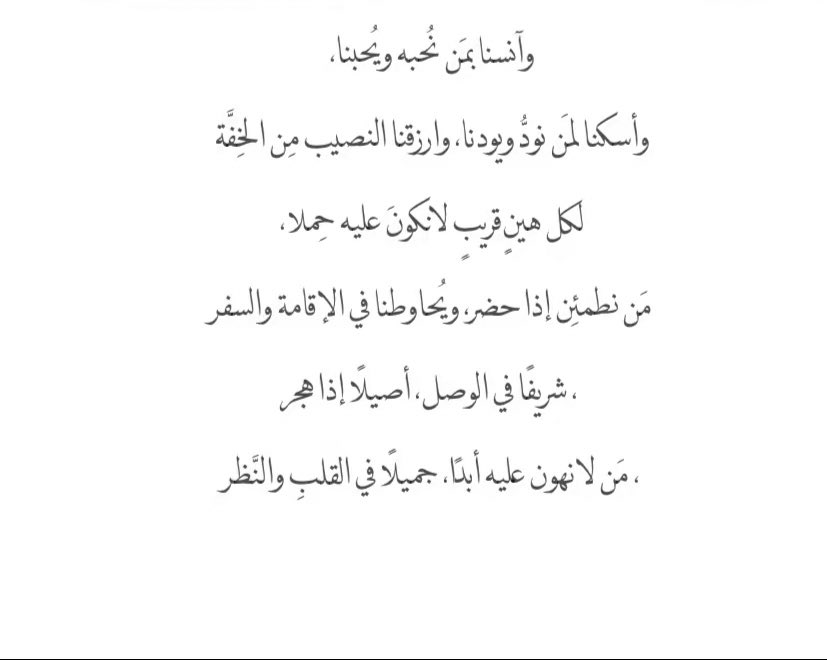 وآنسنا بمَن نُحبه ويُحبنا،
وأسكنا لمَن نودُّ ويودنا، وارزقنا النصيب مِن الخِفَّة
لكل هينٍ قريبٍ لانكونَ عليه حِملا،
مَن نطمئِن إذا حضر، ويُحاوطنا في الإقامة والسفر
، شريفًا في الوصل، أصيلًا إذا هجر
، مَن لانهون عليه أبدًا، جميلًا في القلبِ والنَّظر